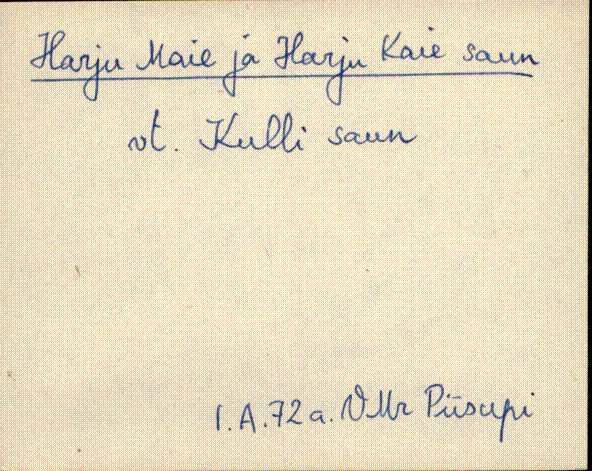 Harju Maie ja Harju Kaie saun
vt. Kulli saun
I.A.72a. VMr Piisupi